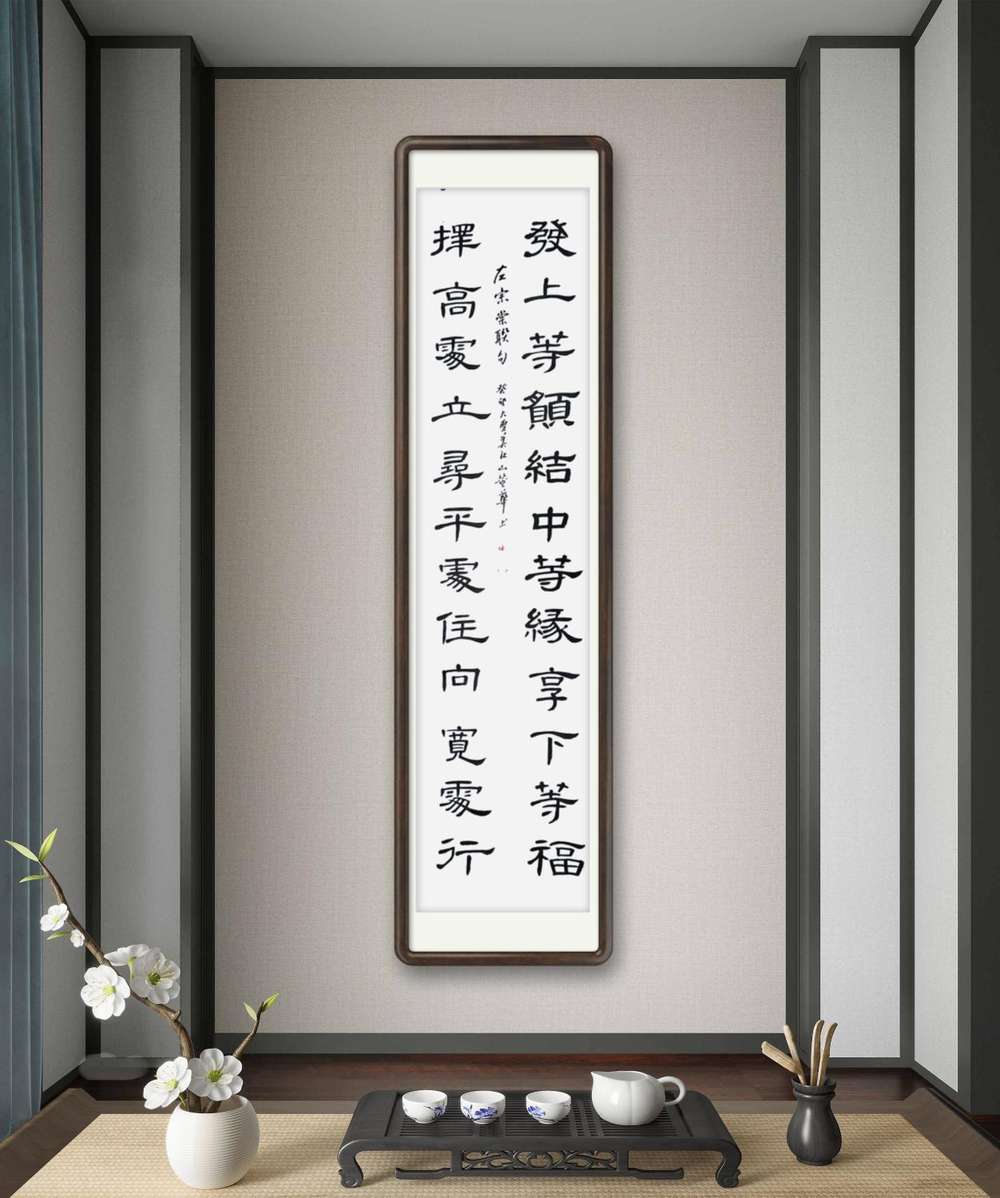 發上等願結中等緣享下等福
擇高處立尋平處住向寬處行
左宗棠聯句 癸卯